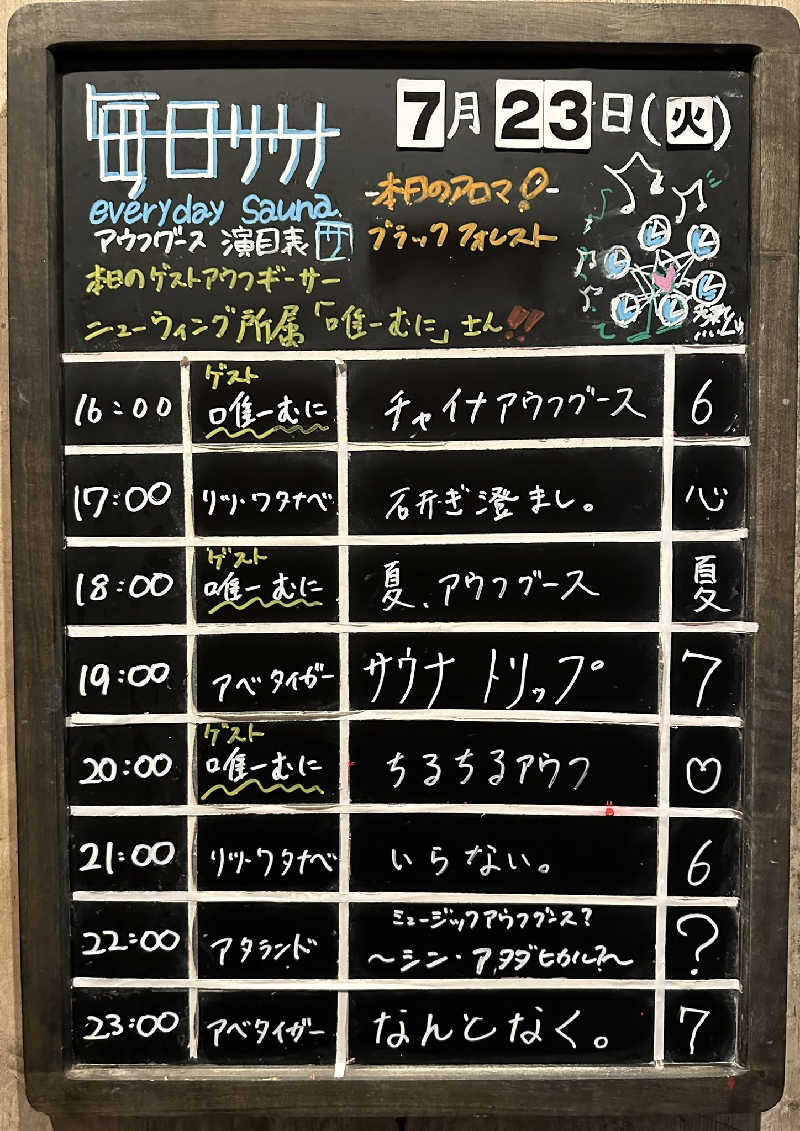 毎日サウナ
7月23日(火)
everyday Sauna
アウフグース 演目表 サ
-本日のアロマ!-
ブラックフォレスト
本日のゲストアウフギーサー
ニューウィング所属「唯一むに」さん!!
16:00 ゲスト 唯一むに チャイナアウフグース 6
17:00 リツ・ワタナベ 研ぎ澄まし。 心
18:00 ゲスト 唯一むに 夏、アウフグース 夏
19:00 アベタイガー サウナトリップ 7
20:00 ゲスト 唯一むに ちるちるアウフ ♡
21:00 リツ・ワタナベ いらない。 6
22:00 アタランド ミュージックアウフグース? 〜シン・アタダヒカル?〜 ?
23:00 アベタイガー なんとなく。 7